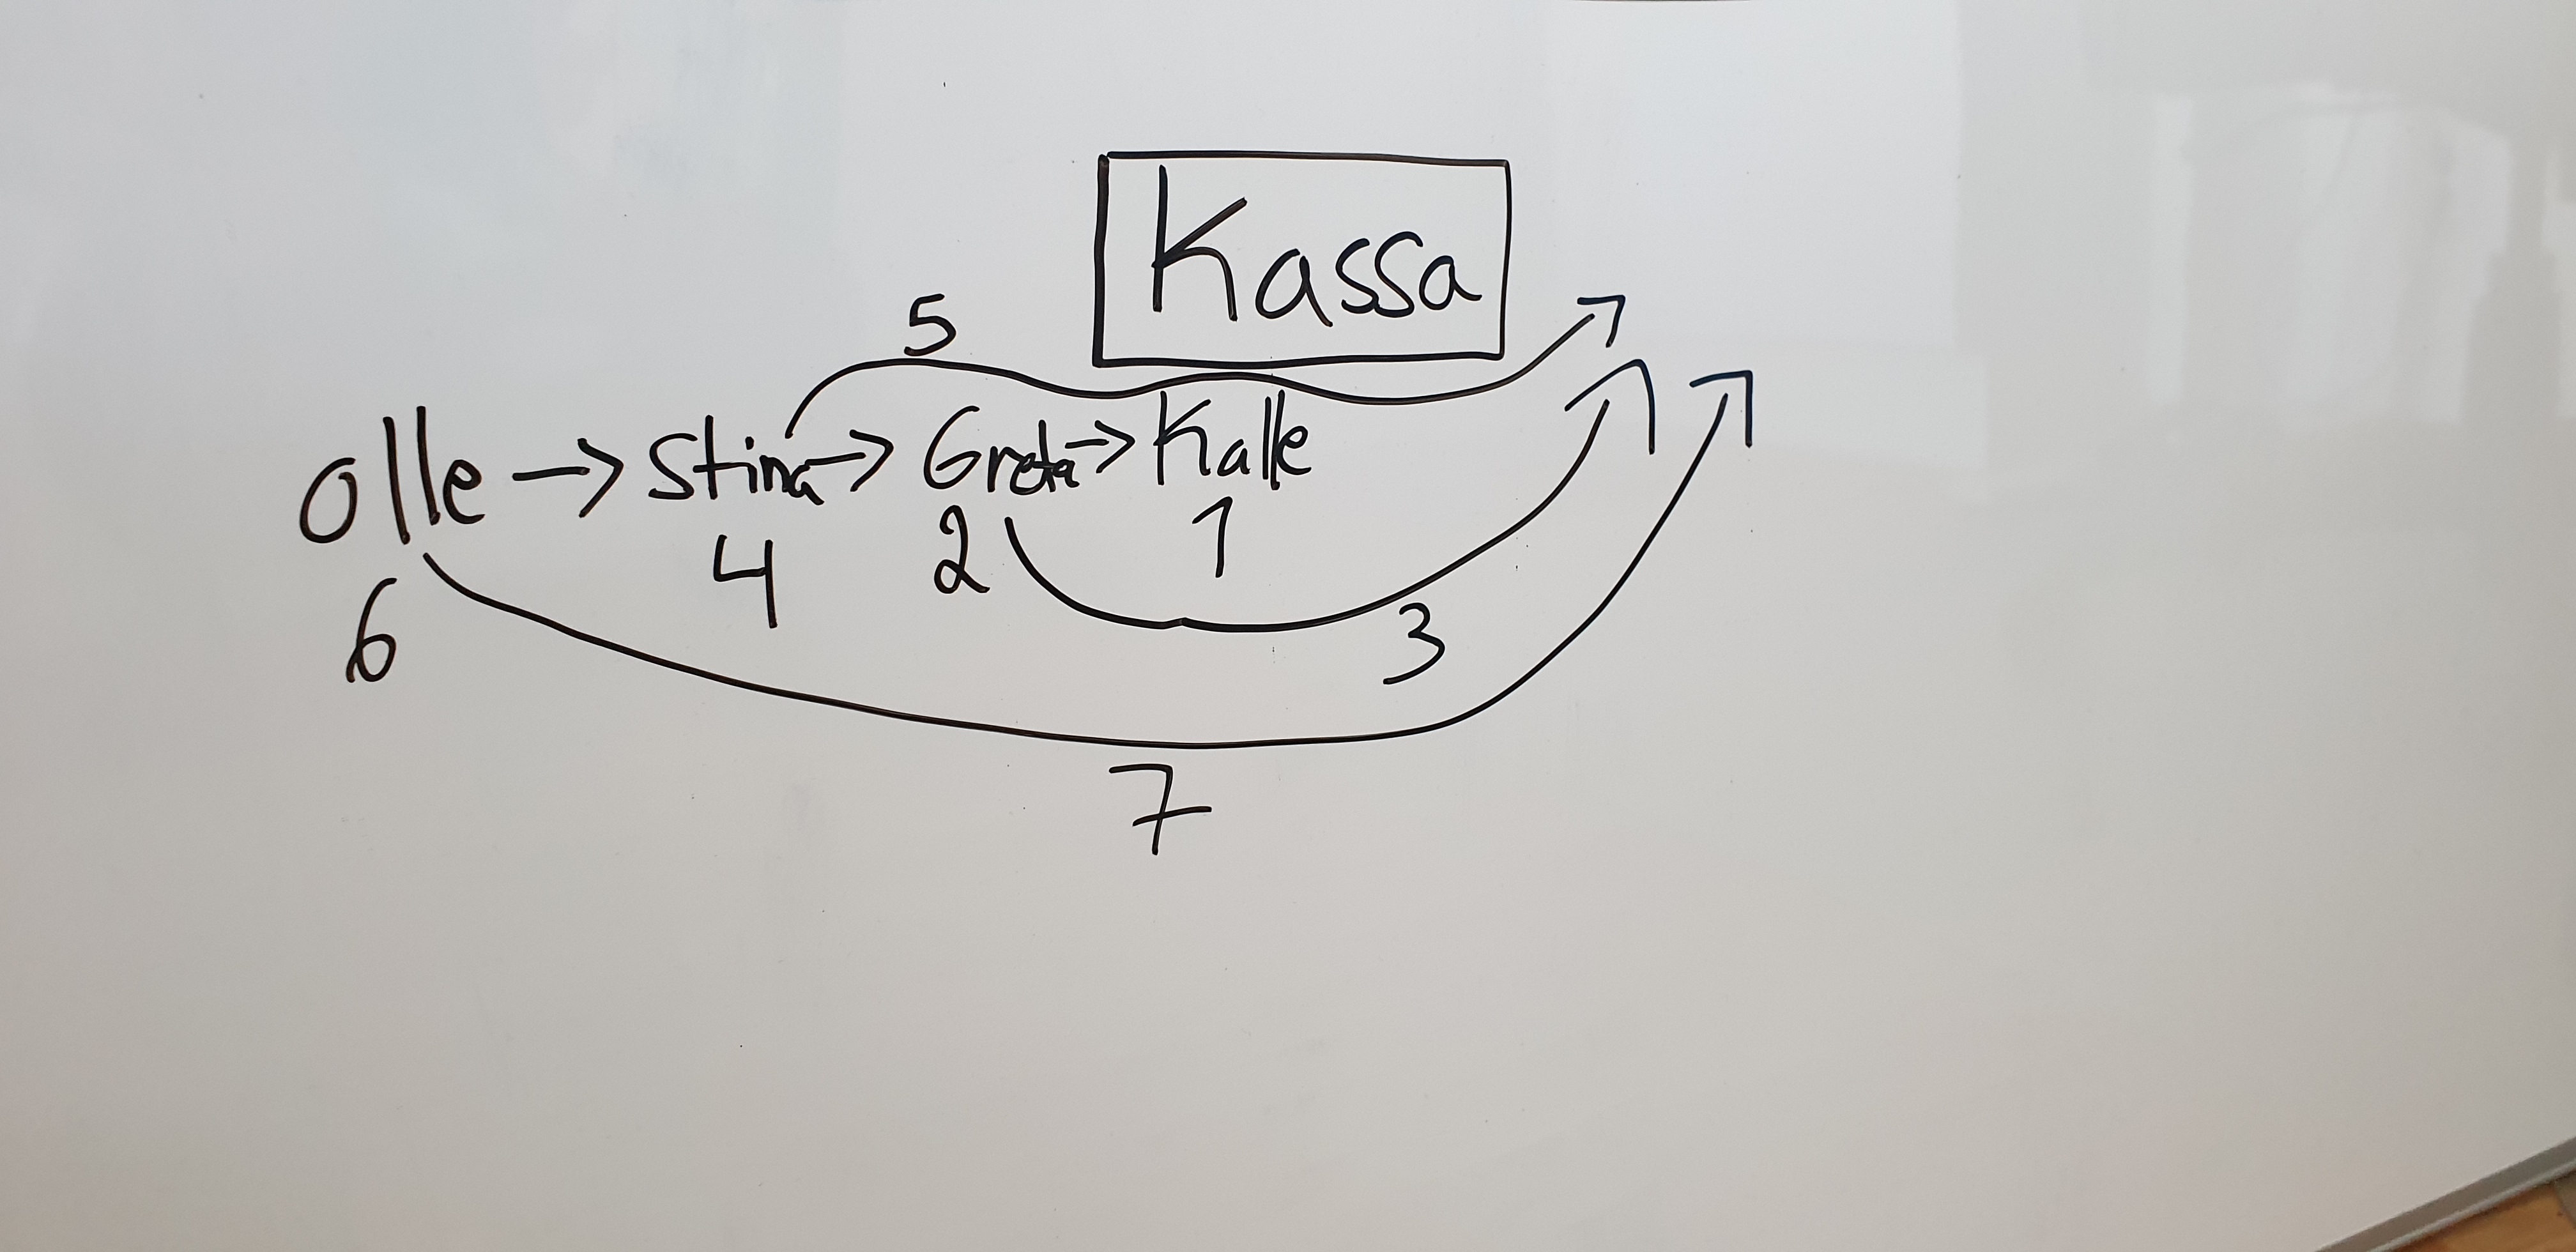 Kassa
5
Olle -> Stina -> Greta -> Kalle
6 4 2 1
3
7